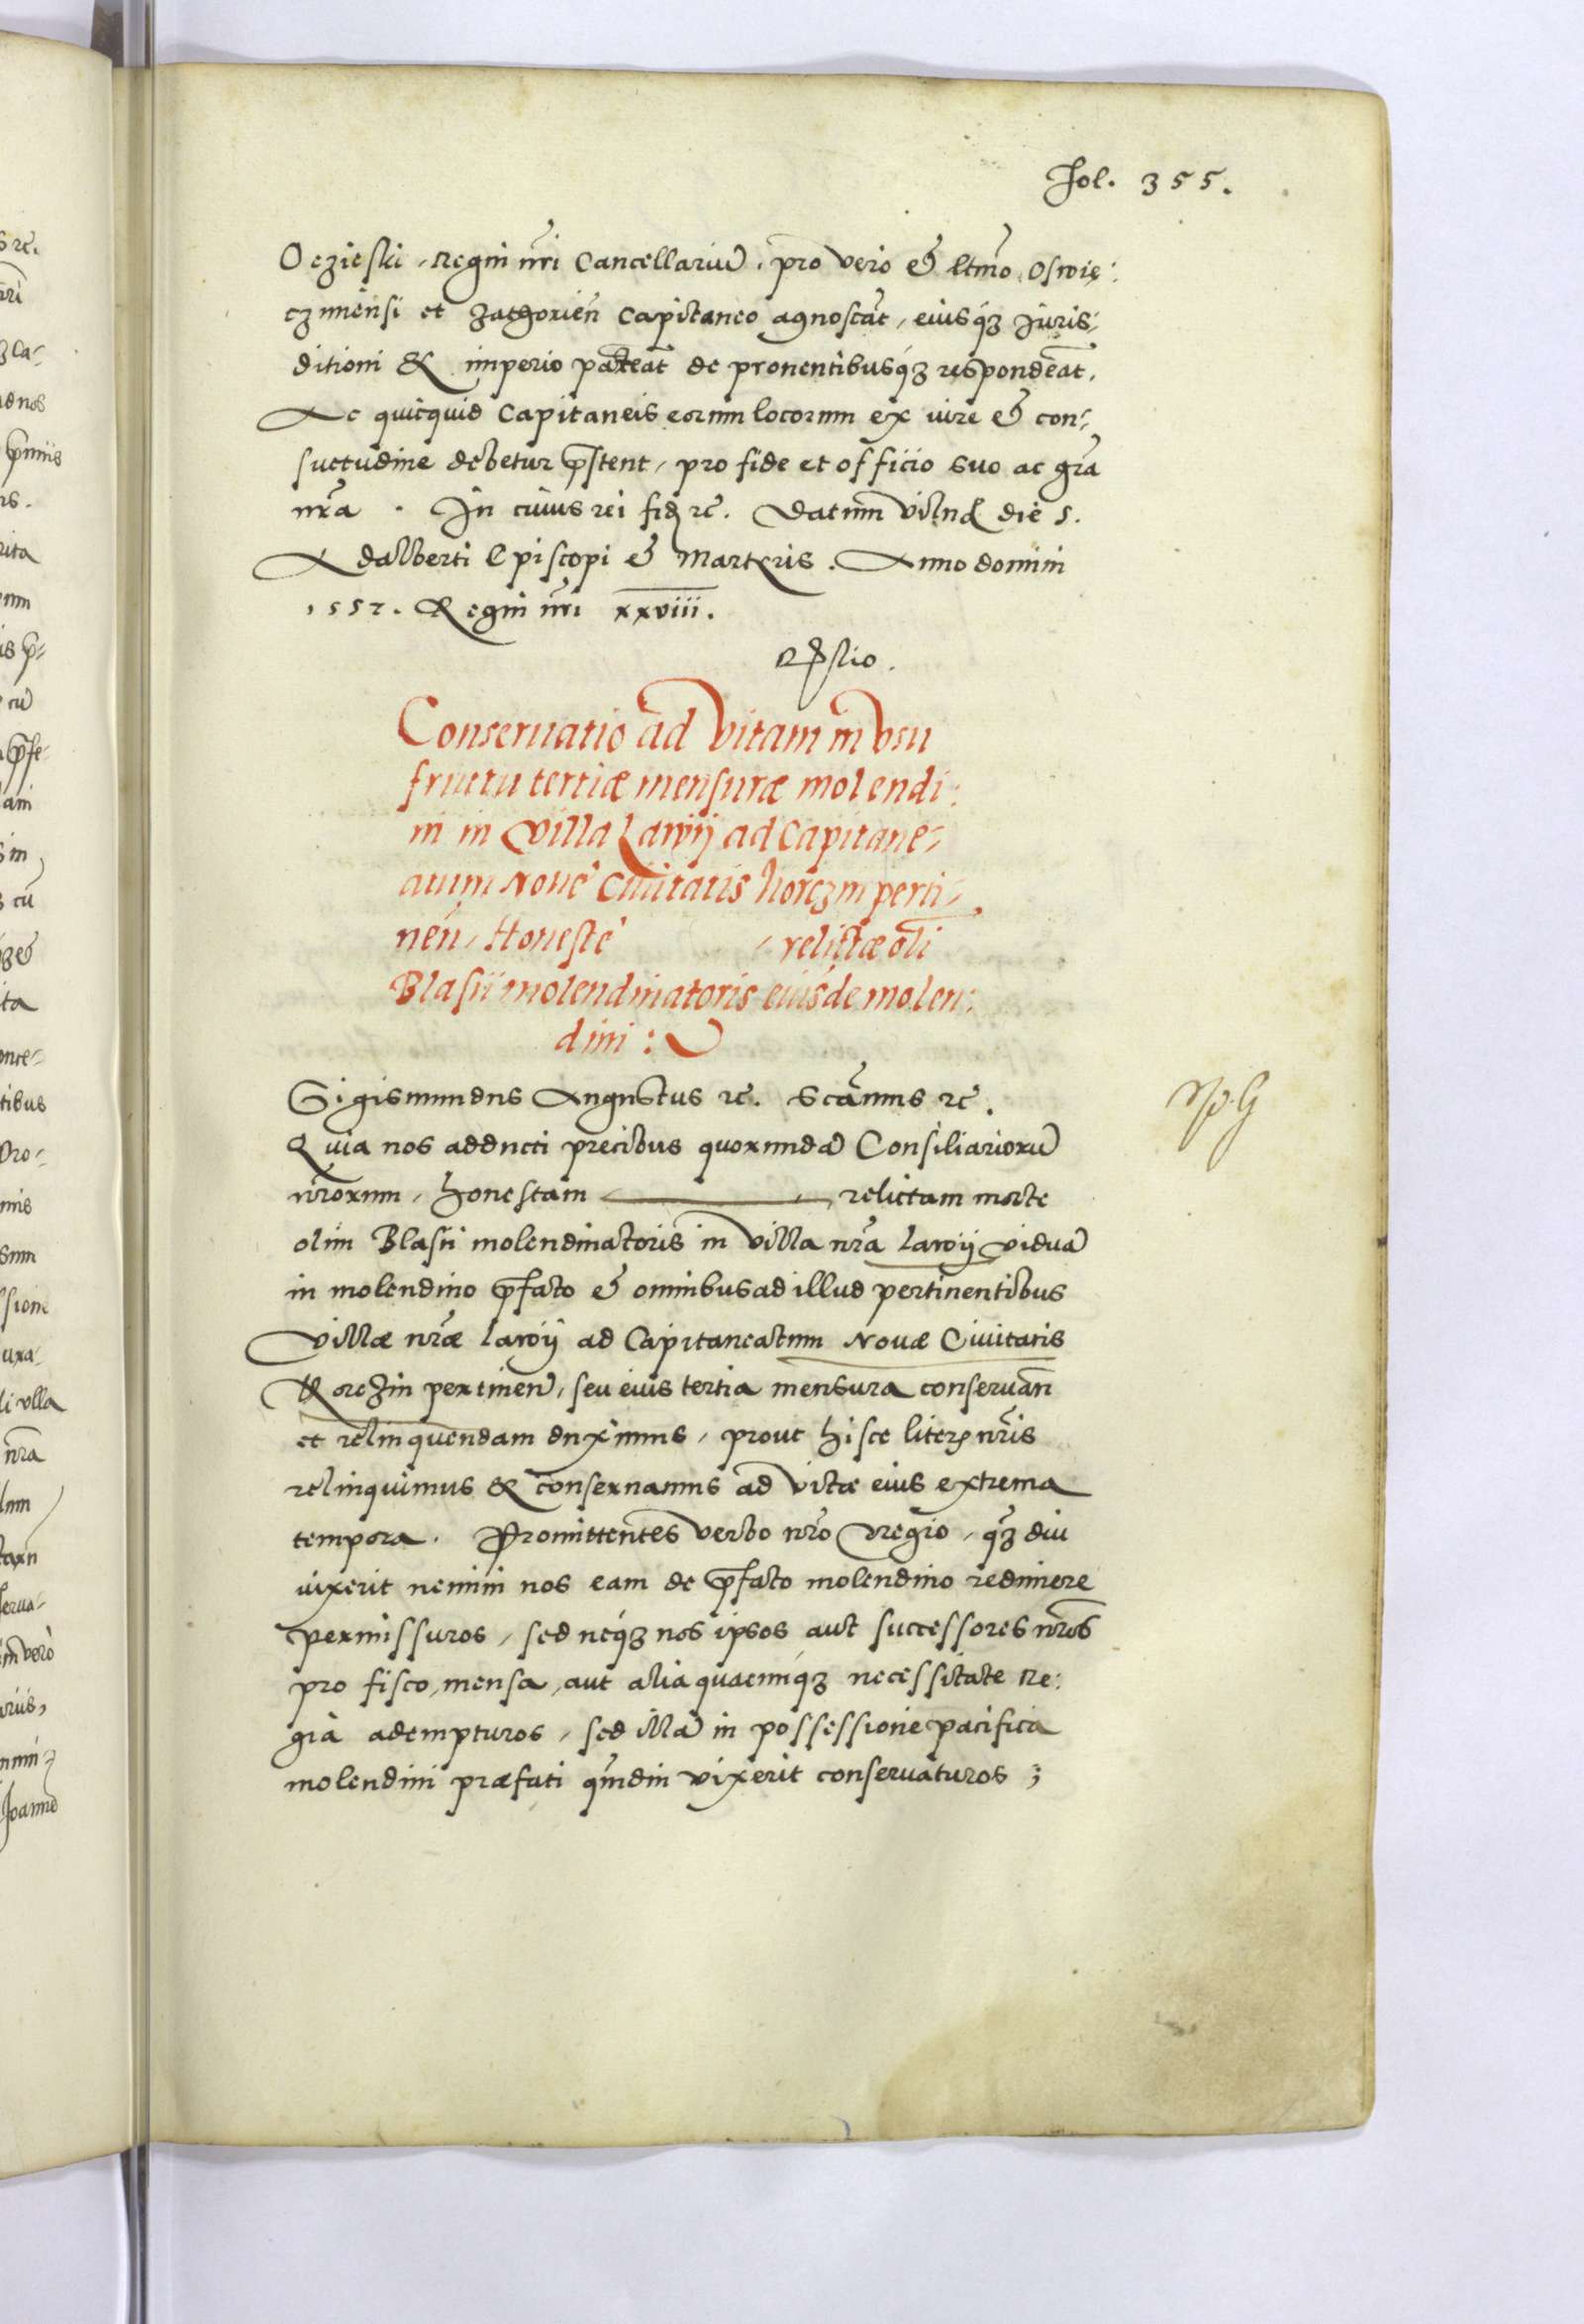 Fol. 355.
Oczieski, Regni nri Cancellariu, pro vero et ltmo Oswie:
czimensi et Zathorien Capitaneo agnoscat, eiusq3 Juris:
ditioni & imperio pareat de pronentibusq3 respondeat.
Ac quicquid Capitaneis eorum locorum ex iure et con:
suetudine debetur pstent, pro fide et officio suo ac gra
nra. In cuius rei fidem etc. Datum Vilnae die S.
Adalberti Episcopi et Marteris. Anno domini
1557. Regni nri xxviii.
Conseruatio ad Vitam in Vsu
fructu tertiæ mensuræ molendi:
ni in Villa Lawij ad Capitane-
atum Noue Ciuitatis Korczin perti-
nen, Honeste , relictæ oli
Blasii molendinatoris eiusde molen:
dini :
Sigismundus Augustus etc. Scamus etc.
Quia nos adducti precibus quorunda Consiliarioru
nrorum, honestam , relictam morte
olim Blasii molendinatoris in villa nra Lawij vidua
in molendino pfato et omnibus ad illud pertinentibus
Villæ nræ Lawij ad Capitaneatum Nouæ Ciuitatis
Korczin pertinen, seu eius tertia mensura conseruan
et relinquendam duximus, prout hisce literis nris
relinquimus & conseruamus ad vitæ eius extrema
tempora. Promittentes verbo nro Regio, q3 diu
vixerit nemini nos eam de pfato molendino redimere
permissuros, sed neq3 nos ipsos aut successores nros
pro fisco, mensa, aut alia quacunq3 necessitate Re:
gia adempturos, sed illa in possessione pacifica
molendini præfati qmdiu vixerit conseruaturos ;